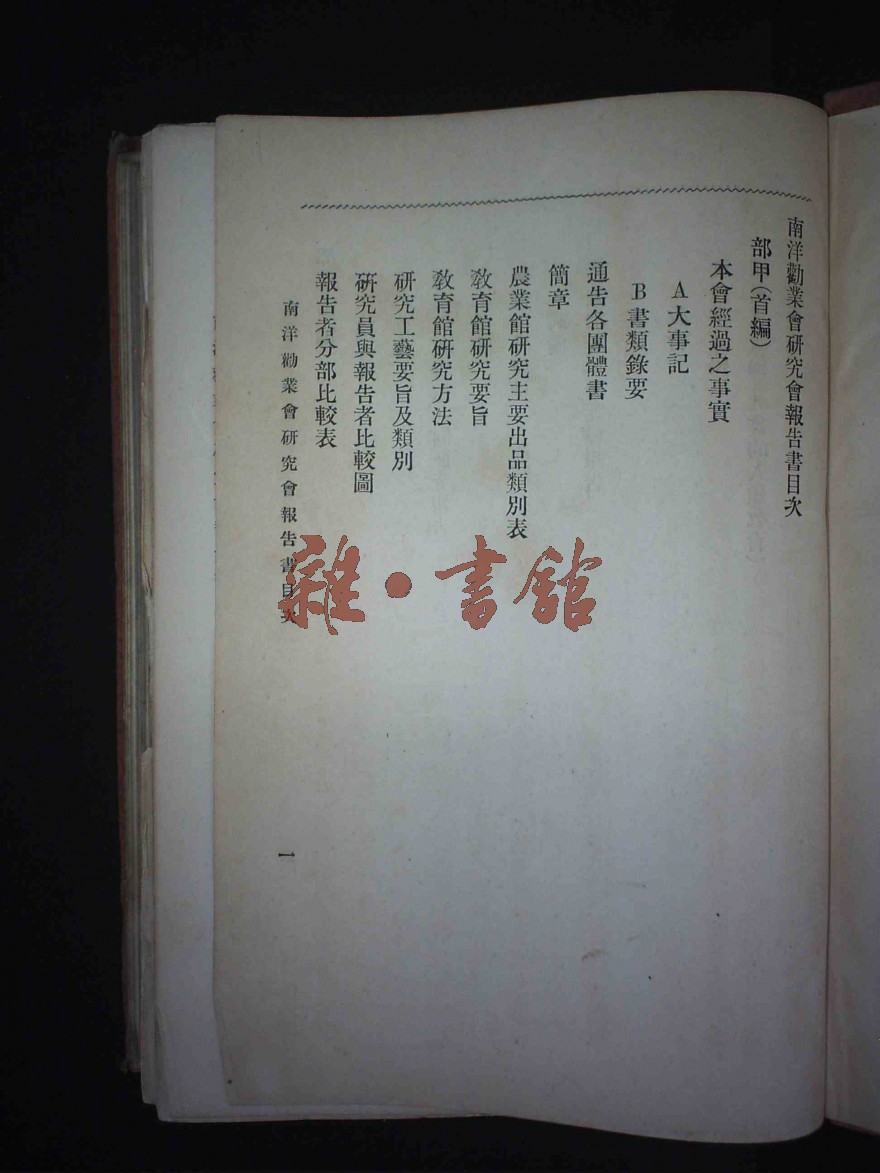 南洋勸業會研究會報告書目次
部甲(首編)
本會經過之事實
A大事記
B書類錄要
通告各團體書
簡章
農業館研究主要出品類別表
教育館研究要旨
教育館研究方法
研究工藝要旨及類別
研究員與報告者比較圖
報告者分部比較表
南洋勸業會研究會報告書目次
一
雜·書館